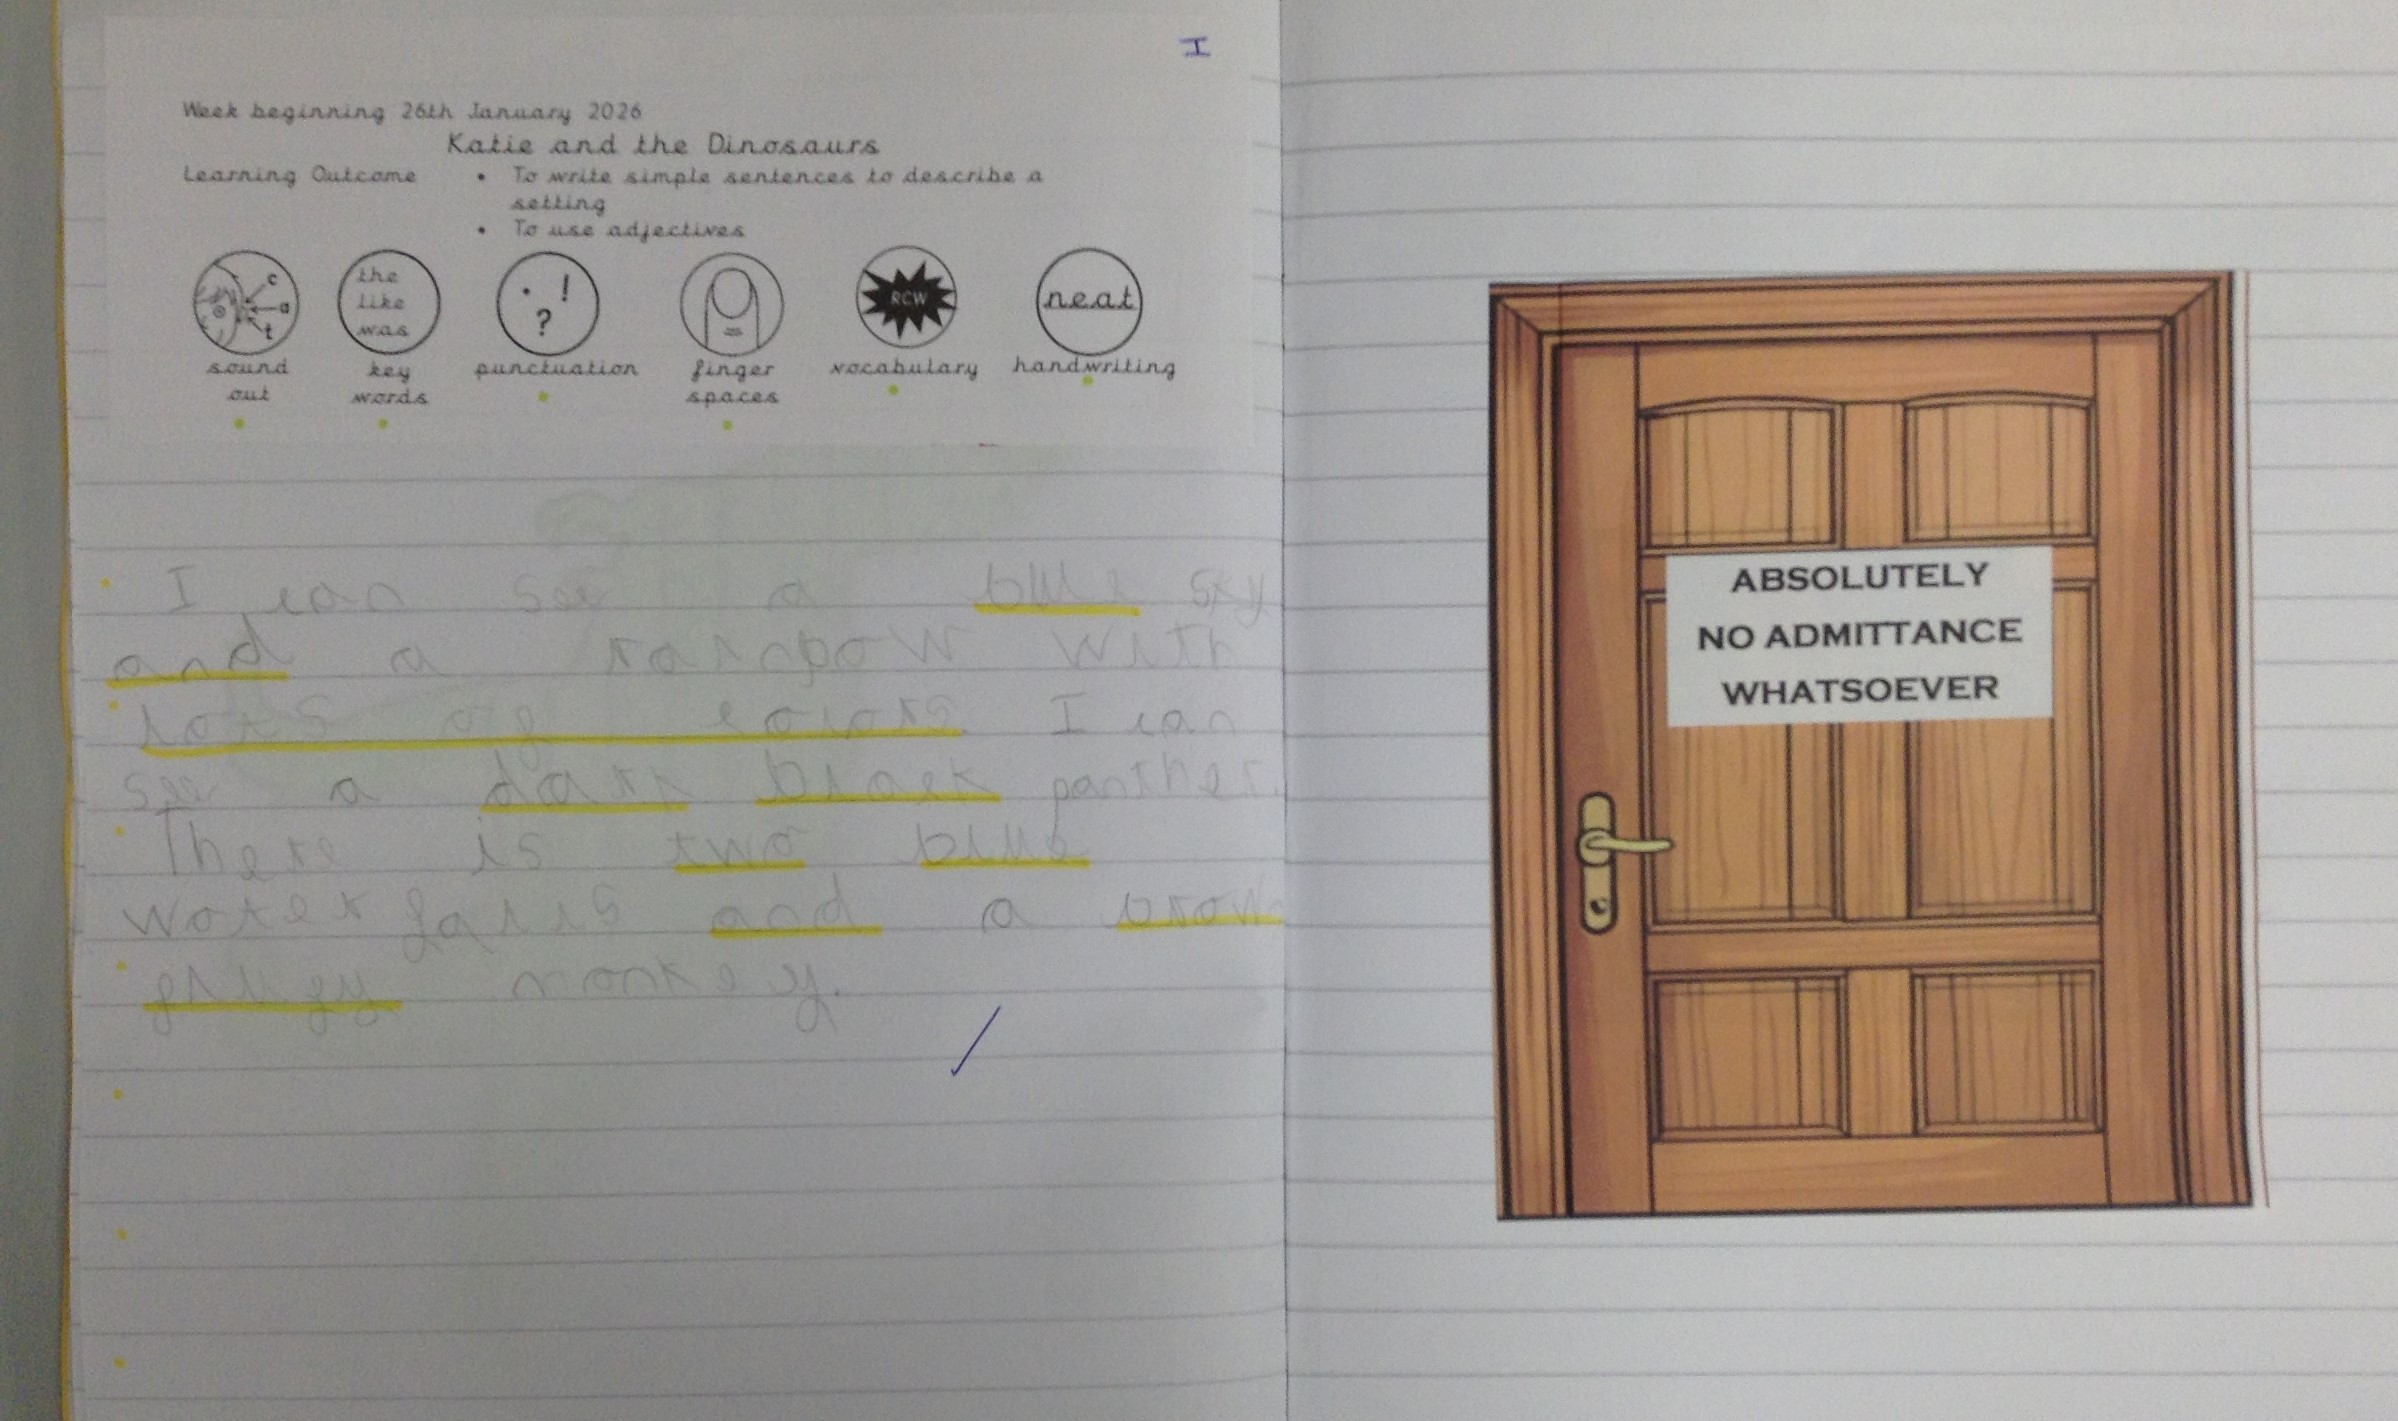 I
Week beginning 26th January 2026
Katie and the Dinosaurs
Learning Outcome • To write simple sentences to describe a
setting
• To use adjectives
c
a
t
the
like
was
. !
?
RCW
neat
sound
out
key
words
punctuation
finger
spaces
vocabulary
handwriting
I can see a blue sky
and a with
lots of colors. I can
see a dark black panther.
There is two blue
waterfalls and a brown
monkey.
ABSOLUTELY
NO ADMITTANCE
WHATSOEVER